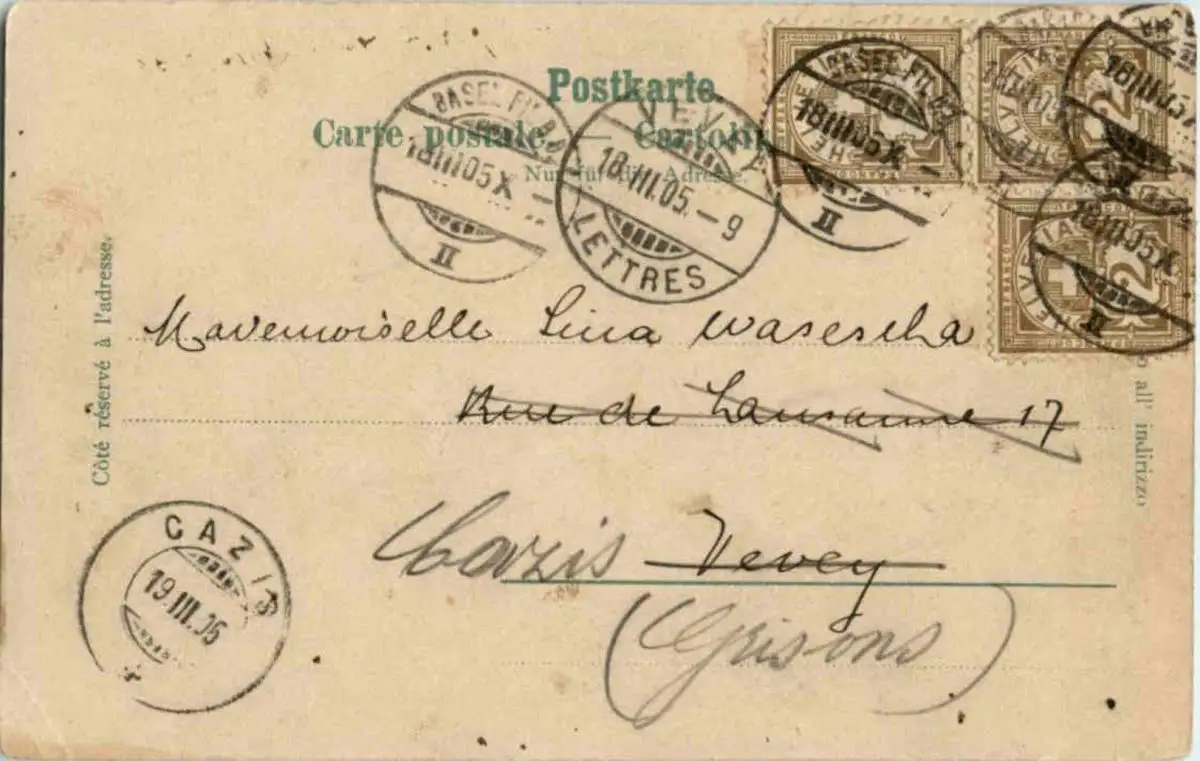 Postkarte
Carte postale — Cartoli
Nur für die Adresse
BASEL FIL.
18III05X
II
VEVEY
18.III.05.-9
LETTRES
BASEL FIL.
18III05X
II
18III05X
II
18III05X
II
2
2
HELVETIA
Côté réservé à l'adresse.
o all' indirizzo
Mademoiselle Lina Wasescha
Rue de Lausanne 17
Cazis Vevey
(Grisons)
CAZIS
19.III.05